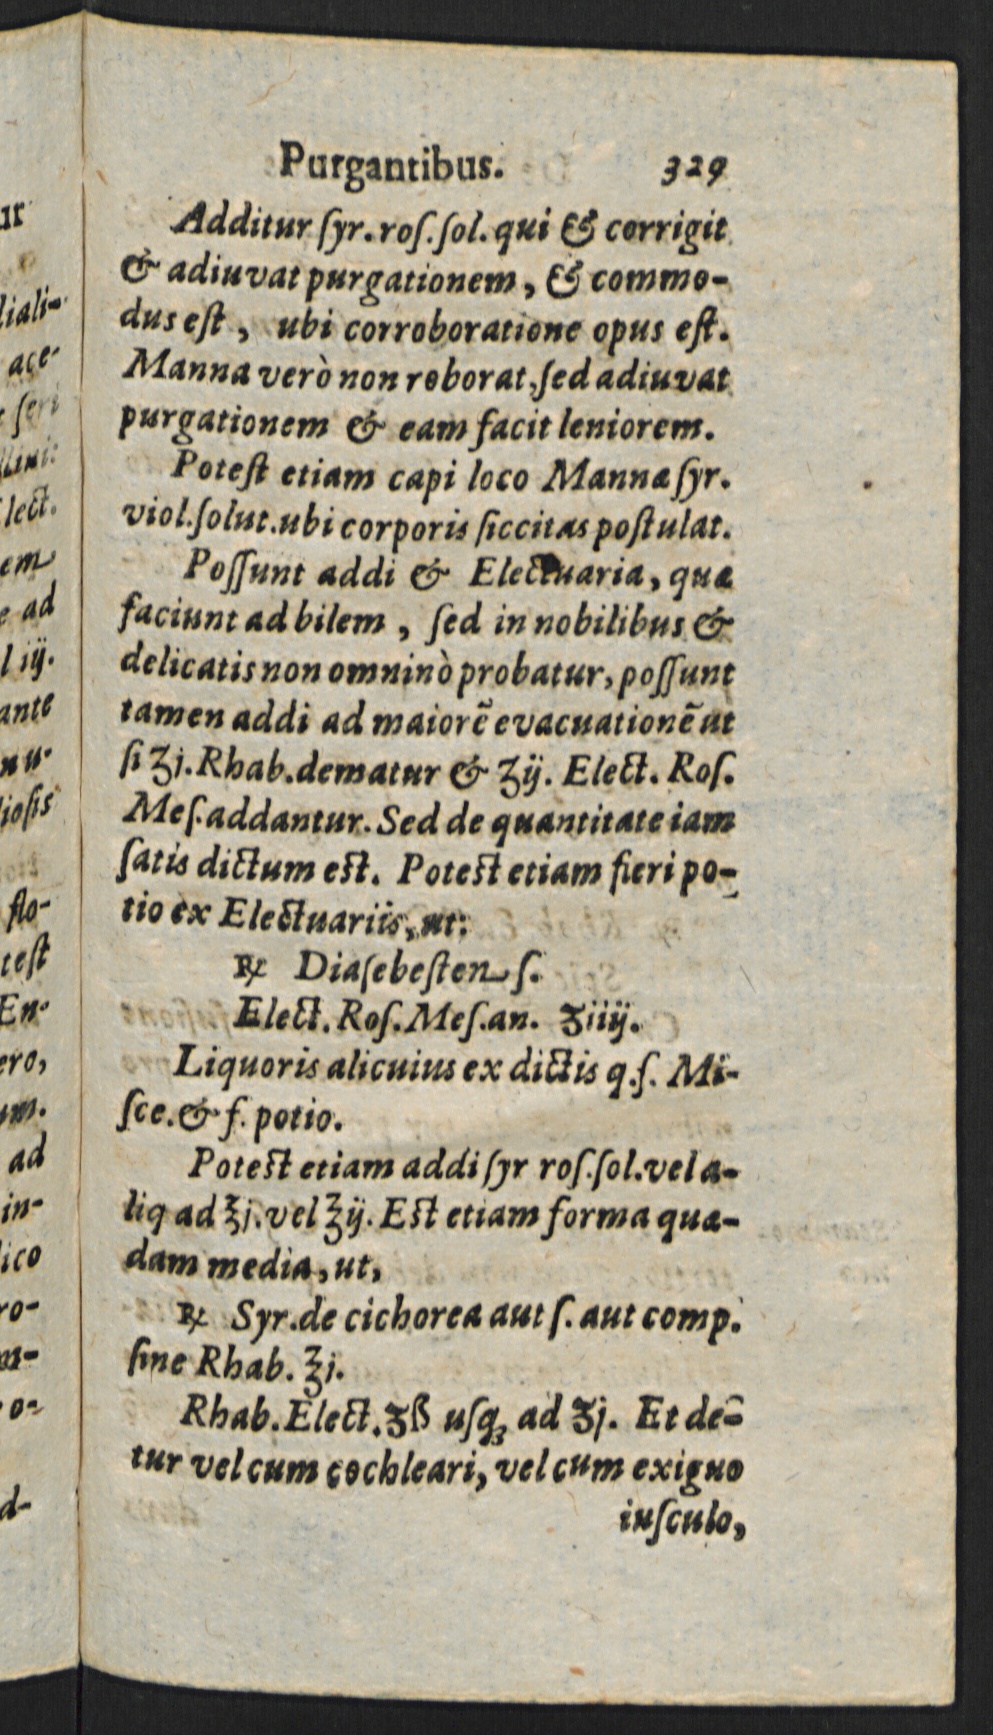 Purgantibus. 329
Additur ſyr. roſ. ſol. qui & corrigit
& adiuvat purgationem, & commo-
dus eſt, ubi corroboratione opus eſt.
Manna verò non roborat, ſed adiuvat
purgationem & eam facit leniorem.
Poteſt etiam capi loco Mannæ ſyr.
viol. ſolut. ubi corporis ſiccitas poſtulat.
Poſſunt addi & Electuaria, quæ
faciunt ad bilem, ſed in nobilibus &
delicatis non omninò probatur, poſſunt
tamen addi ad maiorẽ evacuationẽ ut
ſi ʒj. Rhab. dematur & ʒij. Elect. Roſ.
Meſ. addantur. Sed de quantitate iam
ſatis dictum eſt. Poteſt etiam fieri po-
tio ex Electuariis, ut:
℞ Diaſebeſten ſ.
Elect. Roſ. Meſ. an. ʒiiij.
Liquoris alicuius ex dictis q. ſ. Mi-
ſce. & f. potio.
Poteſt etiam addi ſyr roſ. ſol. vel a-
liq ad ℥j. vel ℥ij. Eſt etiam forma quæ-
dam media, ut,
℞ Syr. de cichorea aut ſ. aut comp.
ſine Rhab. ℥j.
Rhab. Elect. ʒß uſq; ad ʒj. Et de-
tur vel cum cochleari, vel cum exiguo
iuſculo,
ur
liali-
ace-
ſeri
lect.
em
e ad
l iij.
ante
nu-
lioſis
flo-
teſt
En-
ero,
um.
ad
in-
lico
ro-
m-
o-
d-